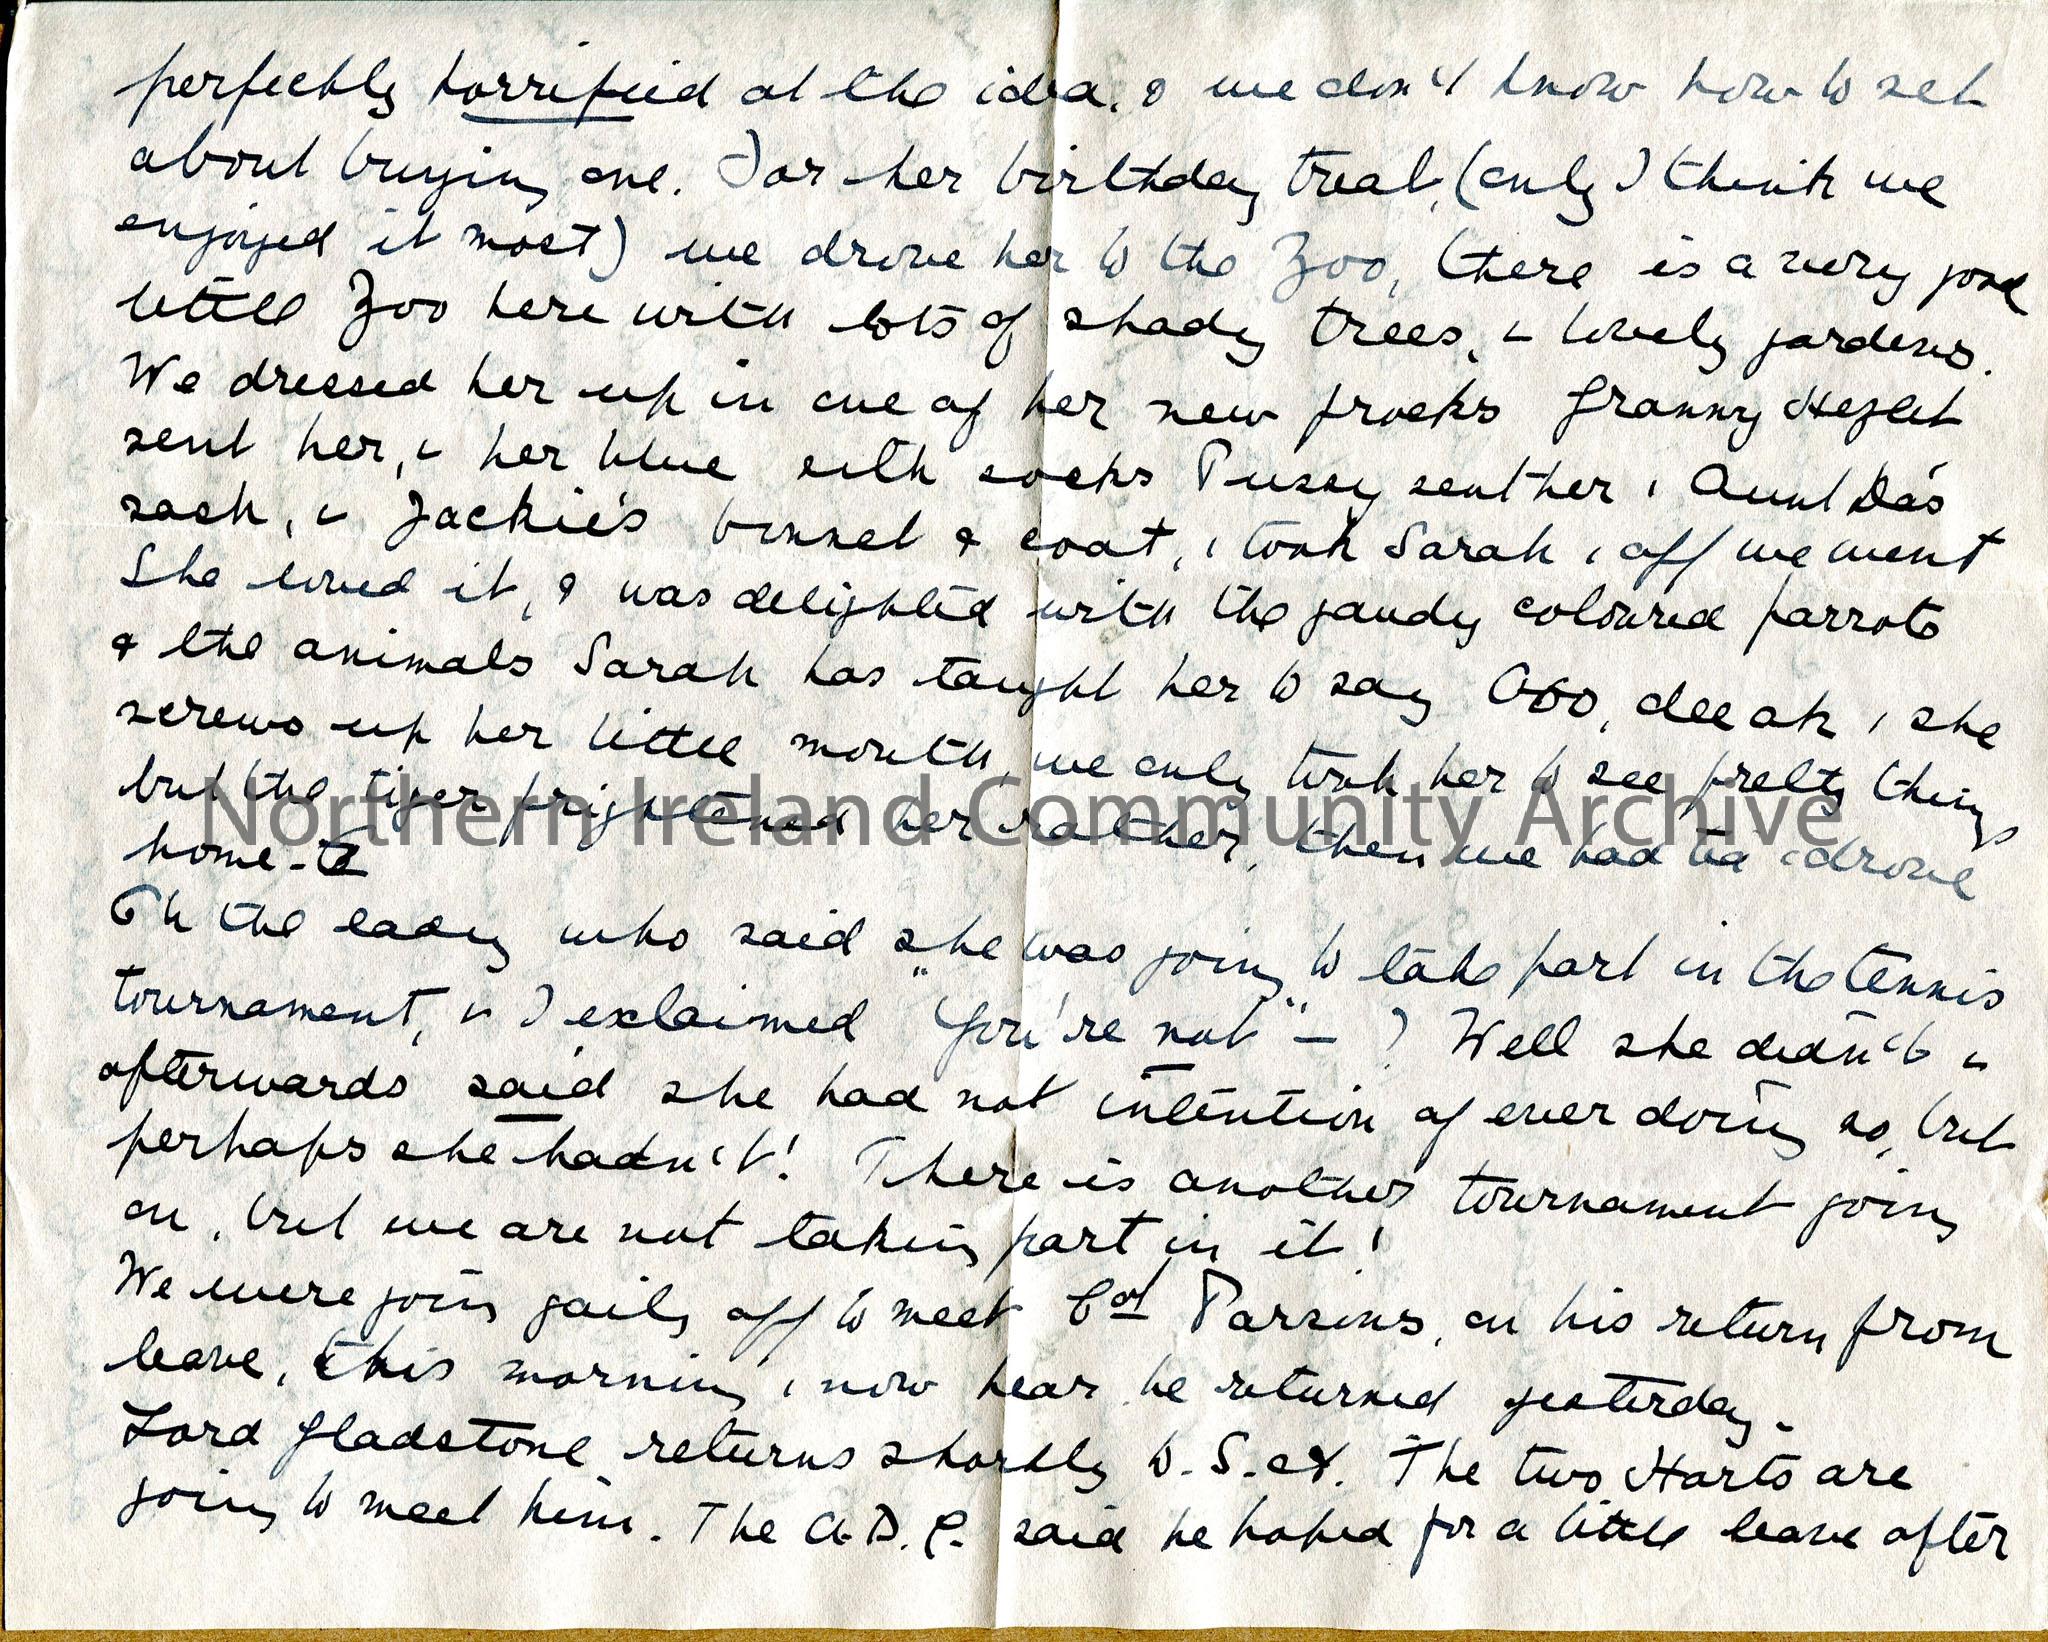 perfectly horrified at the idea, & we don't know how to set
about buying one. For her birthday treat, (only I think we
enjoyed it most) we drove her to the Zoo, there is a very good
little Zoo here with lots of shady trees, & lovely gardens.
We dressed her up in one of her new frocks Granny Hezlet
sent her, & her blue silk socks Pussy sent her, Aunt Da's
sash, & Jackie's bonnet & coat, & took Sarah, & off we went
She loved it, & was delighted with the gaudy coloured parrots
& the animals Sarah has taught her to say Ooo, dee ah, & she
screws up her little mouth, we only took her to see pretty things
but the tiger frightened her rather, then we had tea & drove
home.
Oh the lady who said she was going to take part in the tennis
tournament, & I exclaimed "You're not" - ? Well she didn't &
afterwards said she had not intention of ever doing so, but
perhaps she hadn't! There is another tournament going
on, but we are not taking part in it!
We were going gaily off to meet Col Parsons, on his return from
leave, this morning, & now hear he returned yesterday.
Lord Gladstone returns shortly to S.A. The two Harts are
going to meet him. The A.D.C. said he hoped for a little leave after
Northern Ireland Community Archive